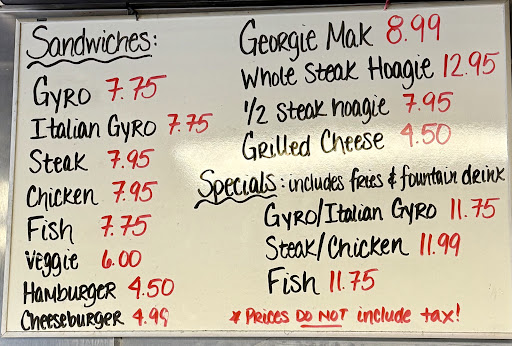 Sandwiches:
Gyro 7.75
Italian Gyro 7.75
Steak 7.95
Chicken 7.95
Fish 7.75
Veggie 6.00
Hamburger 4.50
Cheeseburger 4.99
Georgie Mak 8.99
Whole Steak Hoagie 12.95
1/2 Steak hoagie 7.95
Grilled Cheese 4.50
Specials: includes fries & fountain drink
Gyro/Italian Gyro 11.75
Steak/Chicken 11.99
Fish 11.75
* Prices DO NOT include tax!